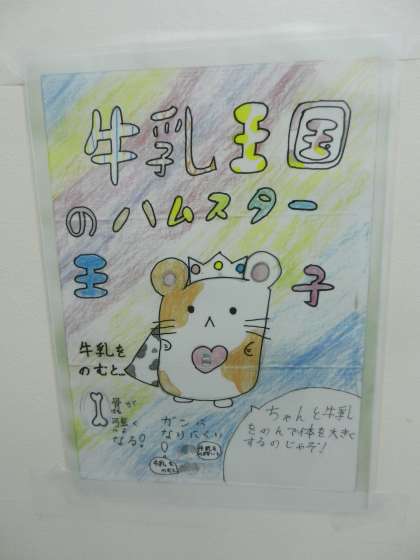 牛乳王国
のハムスター
王子
牛乳を
のむと
骨が
強く
なる!
ガンに
なりにくい
!
牛乳を
ちゃんと牛乳
をのんで体を大きく
するのじゃぞ!